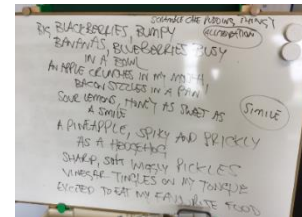 SCRAMBLE THE PUDDING THINGY
BIG BLACKBERRIES, BUMPY
ALLITERATION
BANANAS, BLUEBERRIES BUSY
IN A BOWL
AN APPLE CRUNCHES IN MY MOUTH
BACON SIZZLES IN A PAN!
SOUR LEMONS, HONEY AS SWEET AS
A SMILE
SIMILE
A PINEAPPLE, SPIKY AND PRICKLY
AS A HEDGEHOG
SHARP, SOFT PICKLES
VINEGAR TINGLES ON MY TONGUE
EXCITED TO EAT MY FAVOURITE FOOD